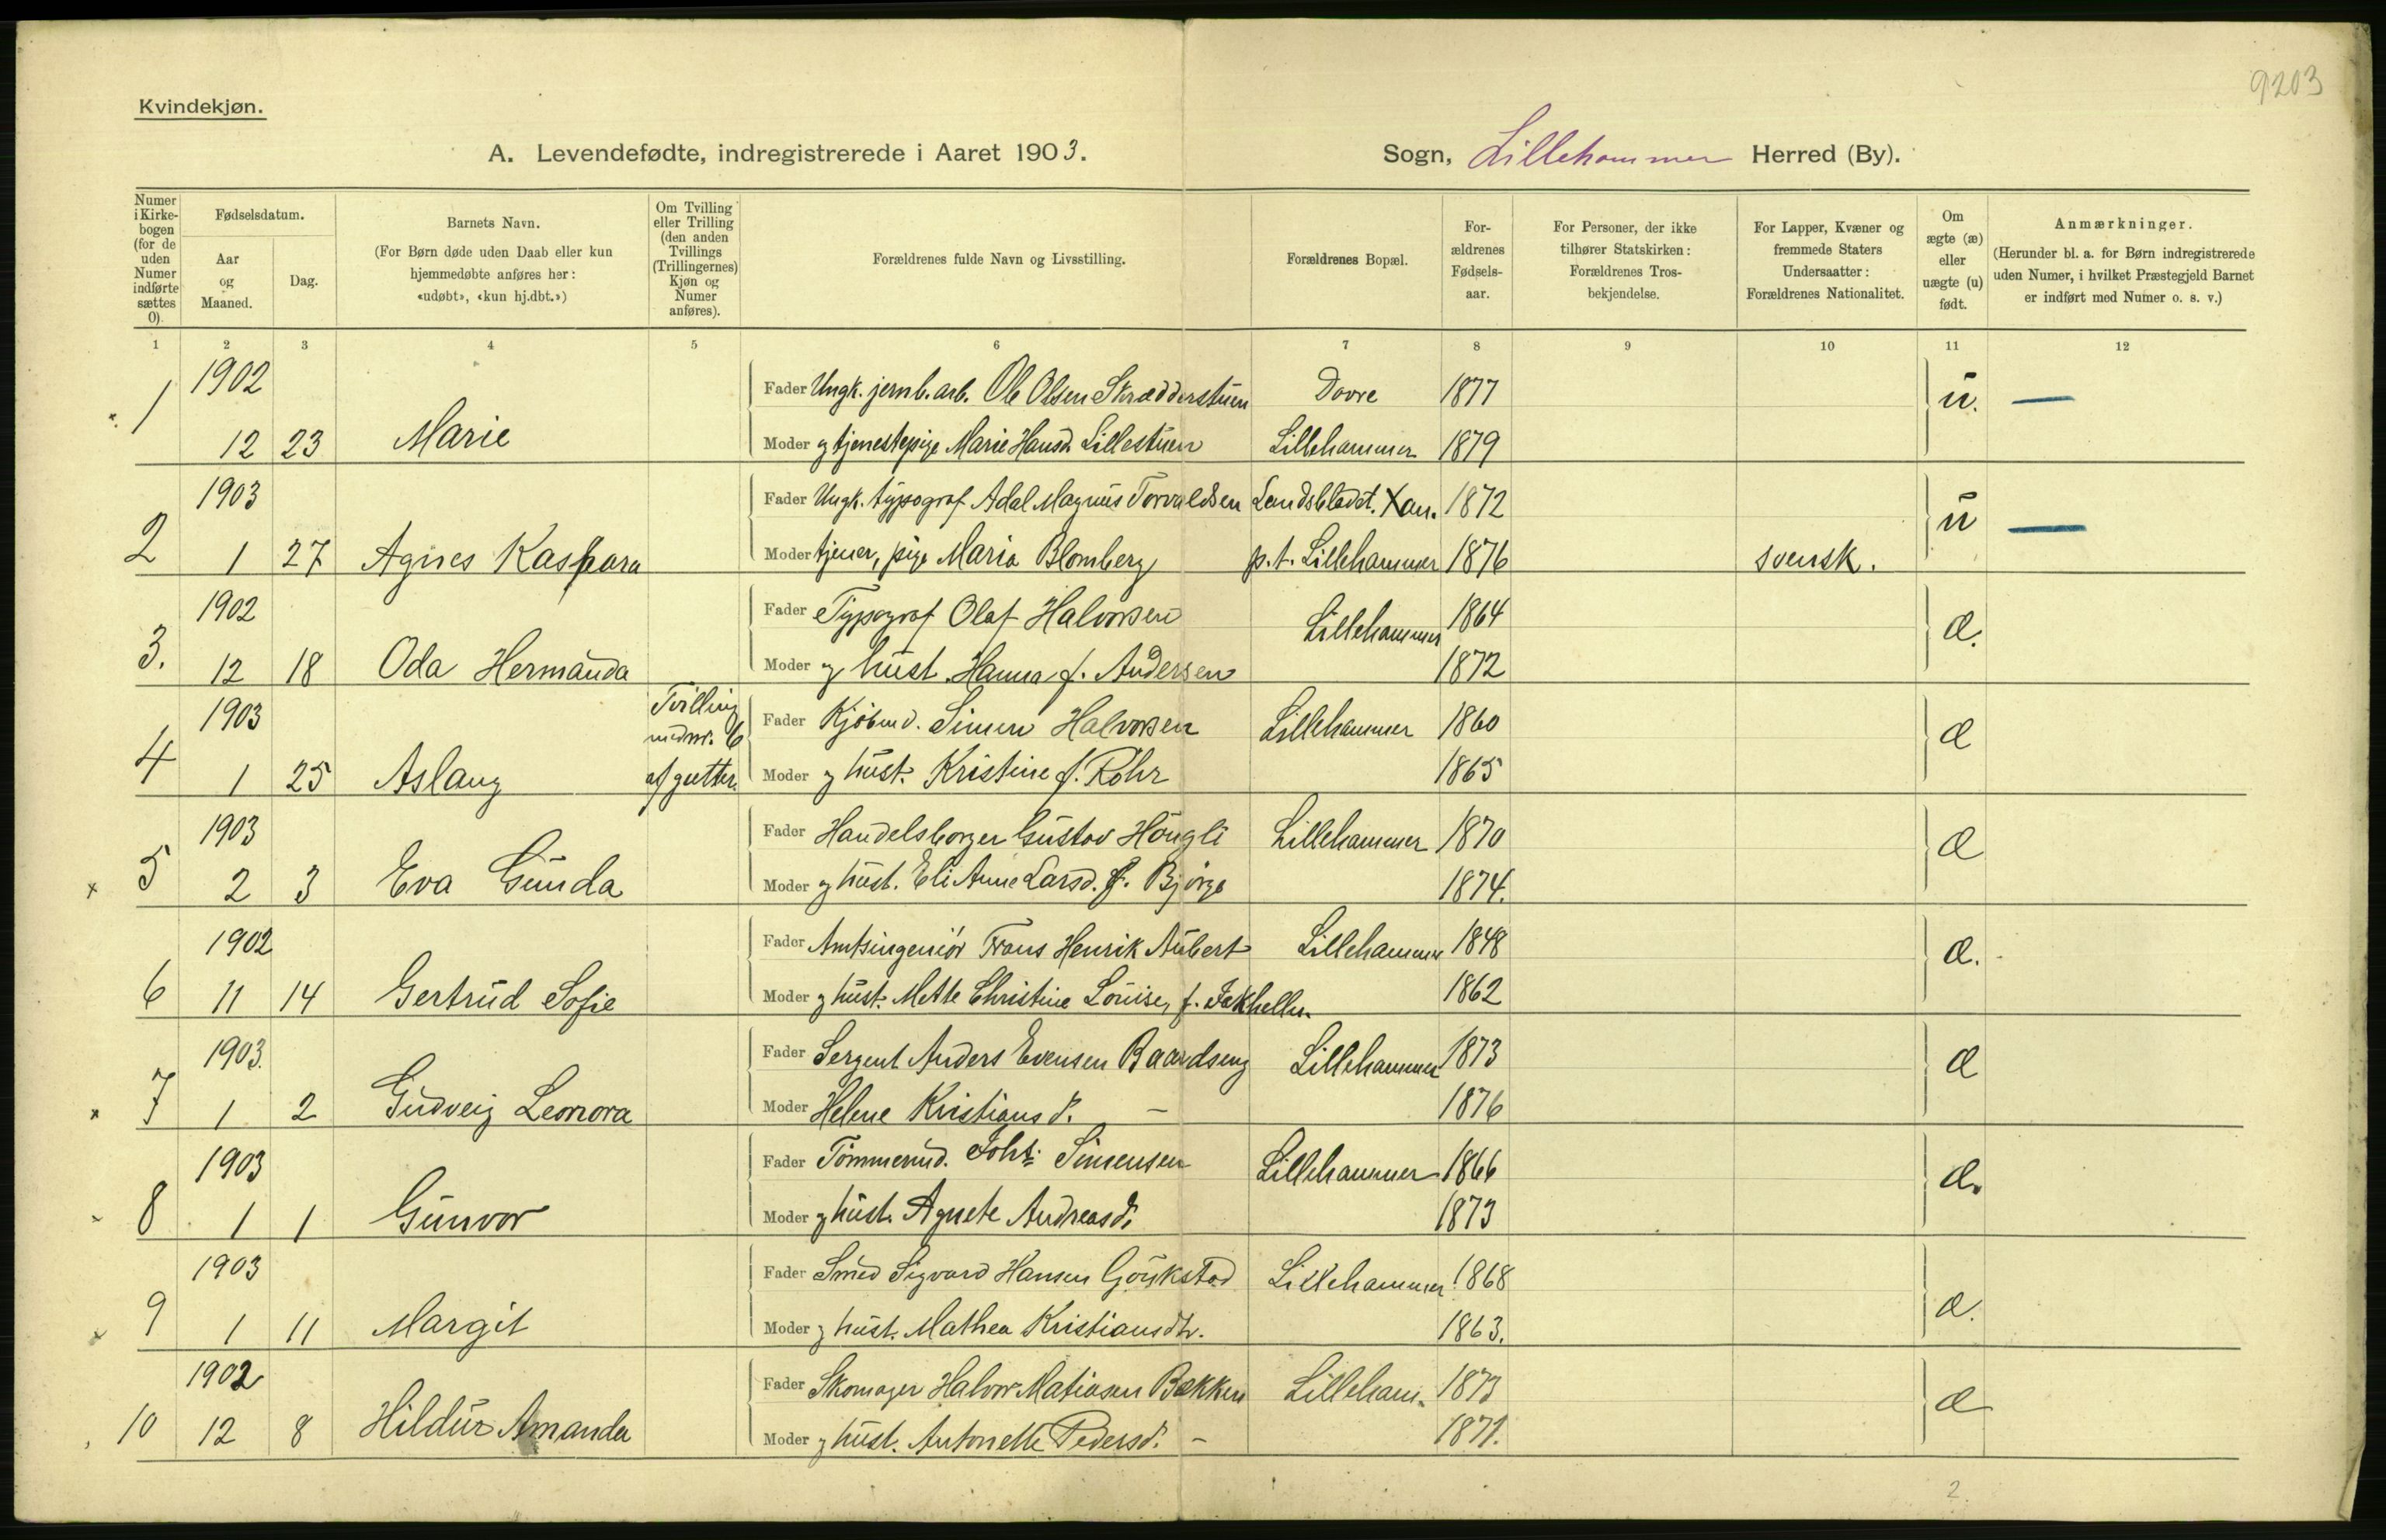 9203
Kvindekjøn.
A. Levendefødte, indregistrerede i Aaret 1903. Sogn, Lillehammer Herred (By).
Numer i Kirkebogen (for de uden Numer indførte sættes 0).
Fødselsdatum.
Aar og Maaned.
Dag.
Barnets Navn.
(For Børn døde uden Daab eller kun hjemmedøbte anføres her: «udøbt», «kun hj.dbt.»)
Om Tvilling eller Trilling (den anden Tvillings (Trillingernes) Kjøn og Numer anføres).
Forældrenes fulde Navn og Livsstilling.
Forældrenes Bopæl.
Forældrenes Fødselsaar.
For Personer, der ikke tilhører Statskirken: Forældrenes Trosbekjendelse.
For Lapper, Kvæner og fremmede Staters Undersaatter: Forældrenes Nationalitet.
Om ægte (æ) eller uægte (u) født.
Anmærkninger.
(Herunder bl. a. for Børn indregistrerede uden Numer, i hvilket Præstegjeld Barnet er indført med Numer o. s. v.)
1 2 3 4 5 6 7 8 9 10 11 12
1902 Fader Ungk. jernb. arb. Ole Olsen Skrædderstuen Dovre 1877 u. —
1 12 23 Marie Moder og tjenestepige Marie Hansd. Lillestuen Lillehammer 1879
1903 Fader Ungk. typograf Adal Magnus Torvaldsen Landsbladet. Xan. 1872 u —
2 1 27 Agnes Kaspara Moder tjener, pige Maria Blomberg p.t. Lillehammer 1876 svensk.
1902 Fader Typograf Olaf Halvorsen Lillehammer 1864 æ.
3. 12 18 Oda Hermanda Moder og hust. Hanna f. Andersen 1872
1903 Tvilling med nr. 6 Fader Kjøbmd. Simen Halvorsen Lillehammer 1860 æ
4 1 25 Aslaug af gutter. Moder og hust. Kristine f. Röhr 1865
1903 Fader Handelsborger Gustav Hougli Lillehammer 1870 æ
5 2 3 Eva Gunda Moder og hust. Eli Anne Larsd. f. Bjørge 1874.
1902 Fader Amtsingeniör Frans Henrik Aubert Lillehammer 1848 æ.
6 11 14 Gertrud Sofie Moder og hust. Mette Christine Louise, f. Jakhelln. 1862
1903. Fader Sergent Anders Evensen Baardseng Lillehammer 1873 æ
7 1 2 Gudveig Leonora Moder Helene Kristiansd. — 1876
1903 Fader Tömmermd. Johs. Simensen Lillehammer 1866 æ.
8 1 1 Gunvor Moder og hust. Agnete Andreasd. 1873
1903 Fader Smed Sigvard Hansen Görkstad Lillehammer 1868 æ.
9 1 11 Margit Moder og hust. Mathea Kristiansdtr. 1863.
1902 Fader Skomager Halvor Matiasen Bækken Lilleham. 1873 æ
10 12 8 Hildur Amanda Moder og hust. Antonette Pedersd. — 1871.
2